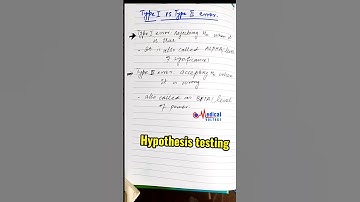 Type I vs Type II error.
Type I error: Rejecting H₀ when it
is true
- It is also called ALPHA (level
of significance)
Type II error: Accepting H₀ when
it is wrong
- also called as BETA (level
of power.
Medical
VOLTAGE
Hypothesis testing